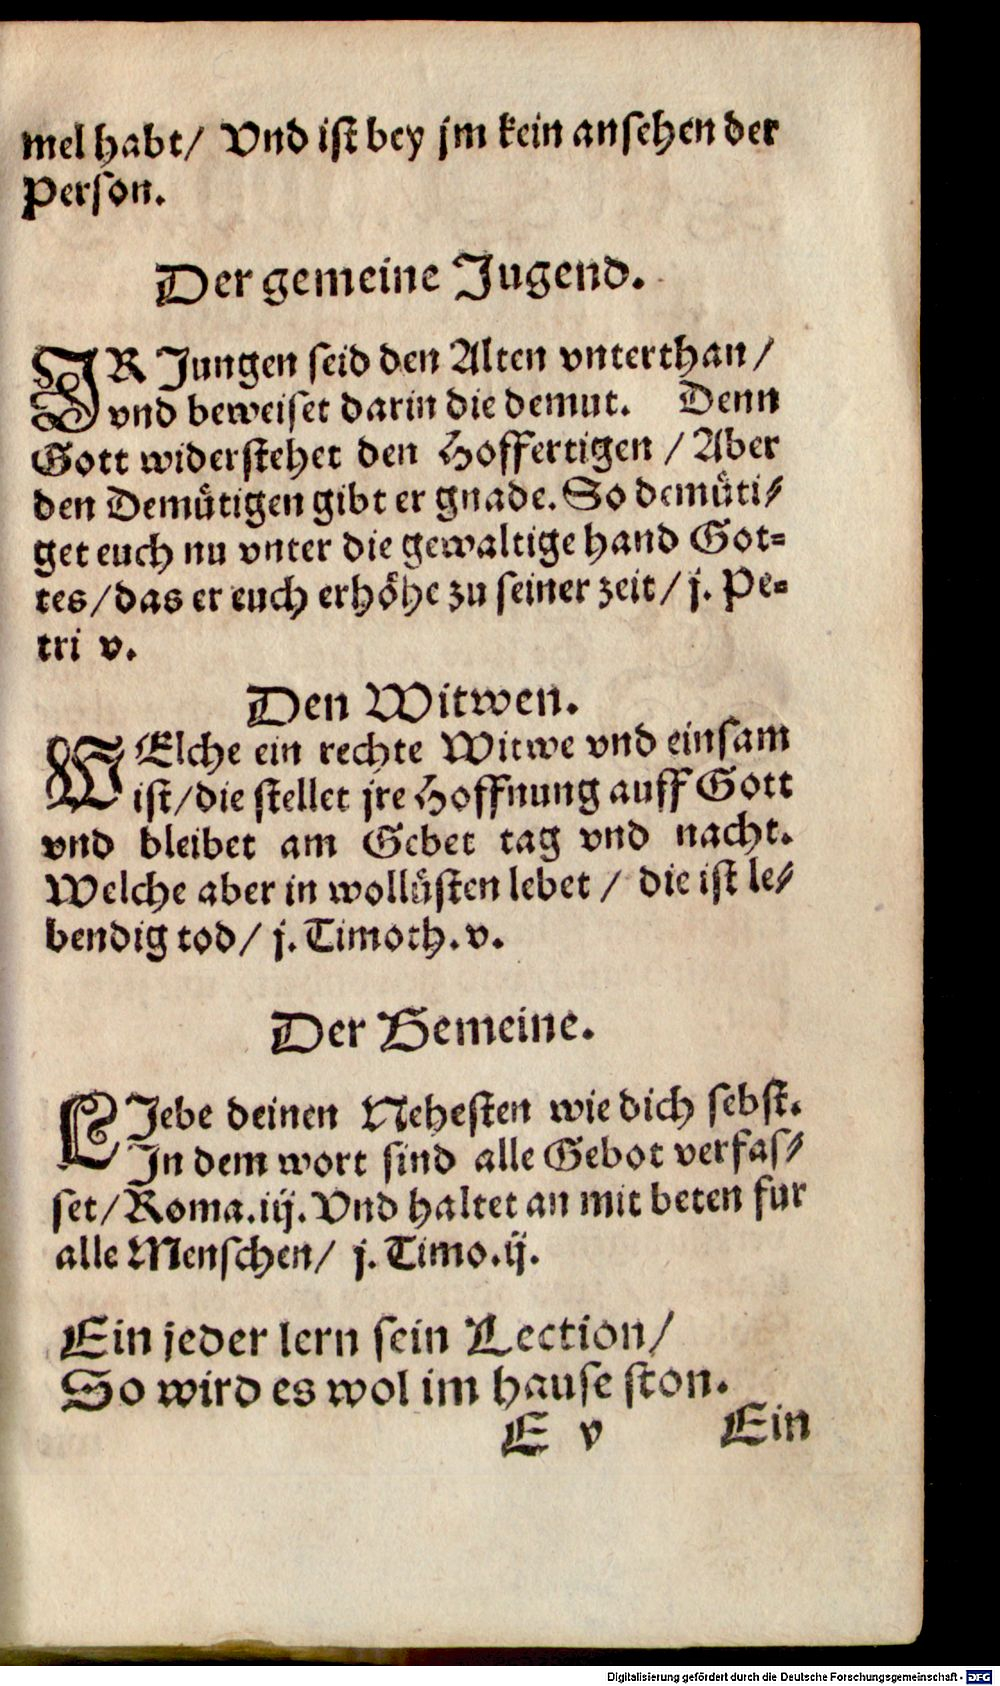 mel habt/ Vnd ist bey jm kein ansehen der
Person.
Der gemeine Jugend.
IR Jungen seid den Alten vnterthan/
vnd beweiset darin die demut. Denn
Gott widerstehet den Hoffertigen / Aber
den Demütigen gibt er gnade. So demüti-
get euch nu vnter die gewaltige hand Got-
tes/das er euch erhöhe zu seiner zeit/ j. Pe-
tri v.
Den Witwen.
WElche ein rechte Witwe vnd einsam
ist/die stellet jre Hoffnung auff Gott
vnd bleibet am Gebet tag vnd nacht.
Welche aber in wollüsten lebet / die ist le-
bendig tod/ j. Timoth. v.
Der Gemeine.
LJebe deinen Nehesten wie dich sebst.
In dem wort sind alle Gebot verfas-
set/Roma.iij. Vnd haltet an mit beten fur
alle Menschen/ j. Timo.ij.
Ein jeder lern sein Lection/
So wird es wol im hause ston.
E v Ein
Digitalisierung gefördert durch die Deutsche Forschungsgemeinschaft - DFG